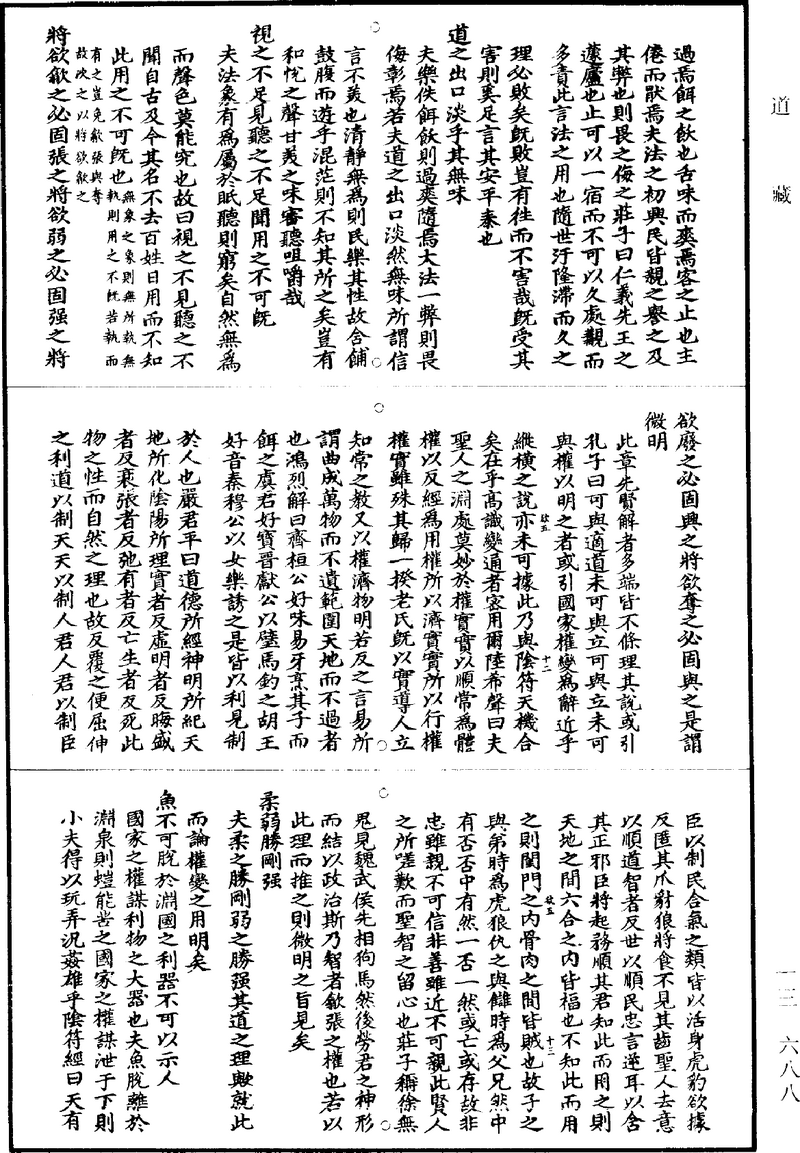 道藏
一三 六八八
過焉餌之飲也舌味而爽焉客之止也主
倦而猒焉夫法之初興民皆親之譽之及
其弊也則畏之侮之莊子曰仁義先王之
蘧廬也止可以一宿而不可以久處觀而
多責此言法之用也隨世汙隆滯而久之
理必敗矣既敗豈有往而不害哉既受其
害則奚足言其安平泰也
道之出口淡乎其無味
夫樂佚餌飲則過爽隨焉大法一弊則畏
侮彰焉若夫道之出口淡然無味所謂信
言不美也清静無為則民樂其性故含餔
鼓腹而遊乎混茫則不知其所之矣豈有
和悅之聲甘美之味審聽咀嚼哉
視之不足見聽之不足聞用之不可既
夫法象有為屬於眂聽則窮矣自然無為
而聲色莫能究也故曰視之不見聽之不
聞自古及今其名不去百姓日用而不知
此用之不可既也無象之象則無所執無執則用之不既若執而
有之豈免歙張與奪故次之以將欲歙之
將欲歙之必固張之將欲弱之必固强之將
欲廢之必固興之將欲奪之必固與之是謂
微明
此章先賢解者多端皆不條理其說或引
孔子曰可與適道未可與立可與立未可
與權以明之者或引國家權變為解近乎
縱橫之說亦未可據此乃與陰符天機合
矣在乎高識變通者密用爾陸希聲曰夫
聖人之淵處莫妙於權實實以順常為體
權以反經為用權所以濟實實所以行權
權實雖殊其歸一揆老氏既以實導人立
知常之教又以權濟物明若反之言易所
謂曲成萬物而不遺範圍天地而不過者
也鴻烈解曰齊桓公好味易牙烹其子而
餌之虞君好寶晋獻公以璧馬釣之胡王
好音秦穆公以女樂誘之是皆以利見制
於人也嚴君平曰道德所經神明所紀天
地所化陰陽所理實者反虛明者反晦盛
者反衰張者反弛有者反亡生者反死此
物之性而自然之理也故反覆之便屈伸
之利道以制天天以制人君人君以制臣
臣以制民含氣之類皆以活身虎豹欲據
反匿其爪豺狼將食不見其齒聖人去意
以順道智者反世以順民忠言逆耳以含
其正邪臣將起務順其君知此而用之則
天地之間六合之内皆福也不知此而用
之則閨門之内骨肉之間皆賊也故子之
與弟時為虎狼仇之與讎時為父兄然中
有否否中有然一否一然或亡或存故非
忠雖親不可信非善雖近不可親此賢人
之所嗟歎而聖智之留心也莊子稱徐無
鬼見魏武侯先相狗馬然後勞君之神形
而結以政治斯乃智者歙張之權也若以
此理而推之則微明之旨見矣
柔弱勝剛强
夫柔之勝剛弱之勝强其道之理歟就此
而論權變之用明矣
魚不可脫於淵國之利器不可以示人
國家之權謀利物之大器也夫魚脫離於
淵泉則螘能害之國家之權謀泄于下則
小夫得以玩弄況姦雄乎陰符經曰天有